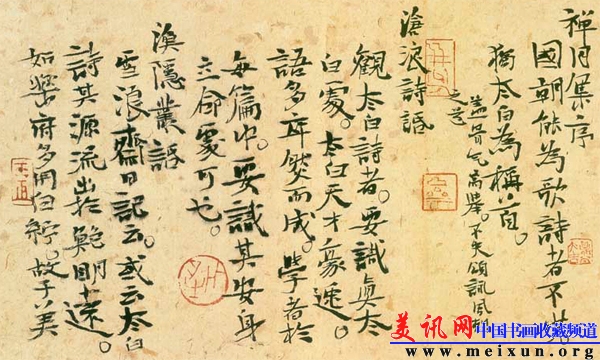 禅月集序
國朝能為歌詩者不少
獨太白為稱首。
盖骨气高舉。不失頌詠風刺
之道
滄浪詩話
觀太白詩者。要識真太
白處。太白天才豪逸。
語多卒然而成。學者於
每篇中。要識其安身
立命處可也。
漁隱叢話
雪浪齋日記云。或云太白
詩其源流出於鮑明遠。
如樂府多用白紵。故子美
美讯网 中国书画收藏频道
www.meixun.org